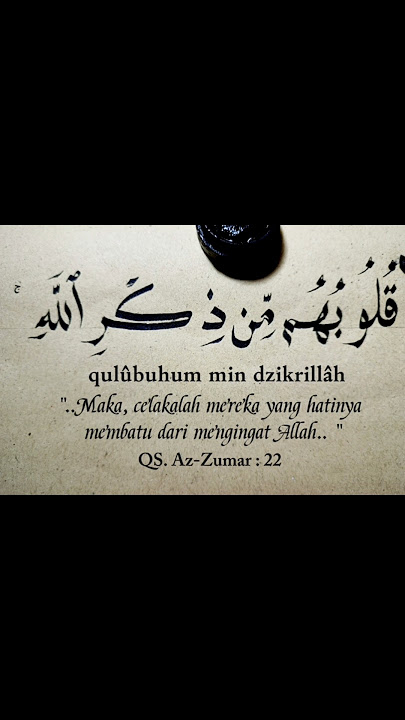 قُلُوبُهُم مِّن ذِكْرِ ٱللَّهِ ۚ
qulûbuhum min dzikrillâh
"..Maka, celakalah mereka yang hatinya
membatu dari mengingat Allah.. "
QS. Az-Zumar : 22